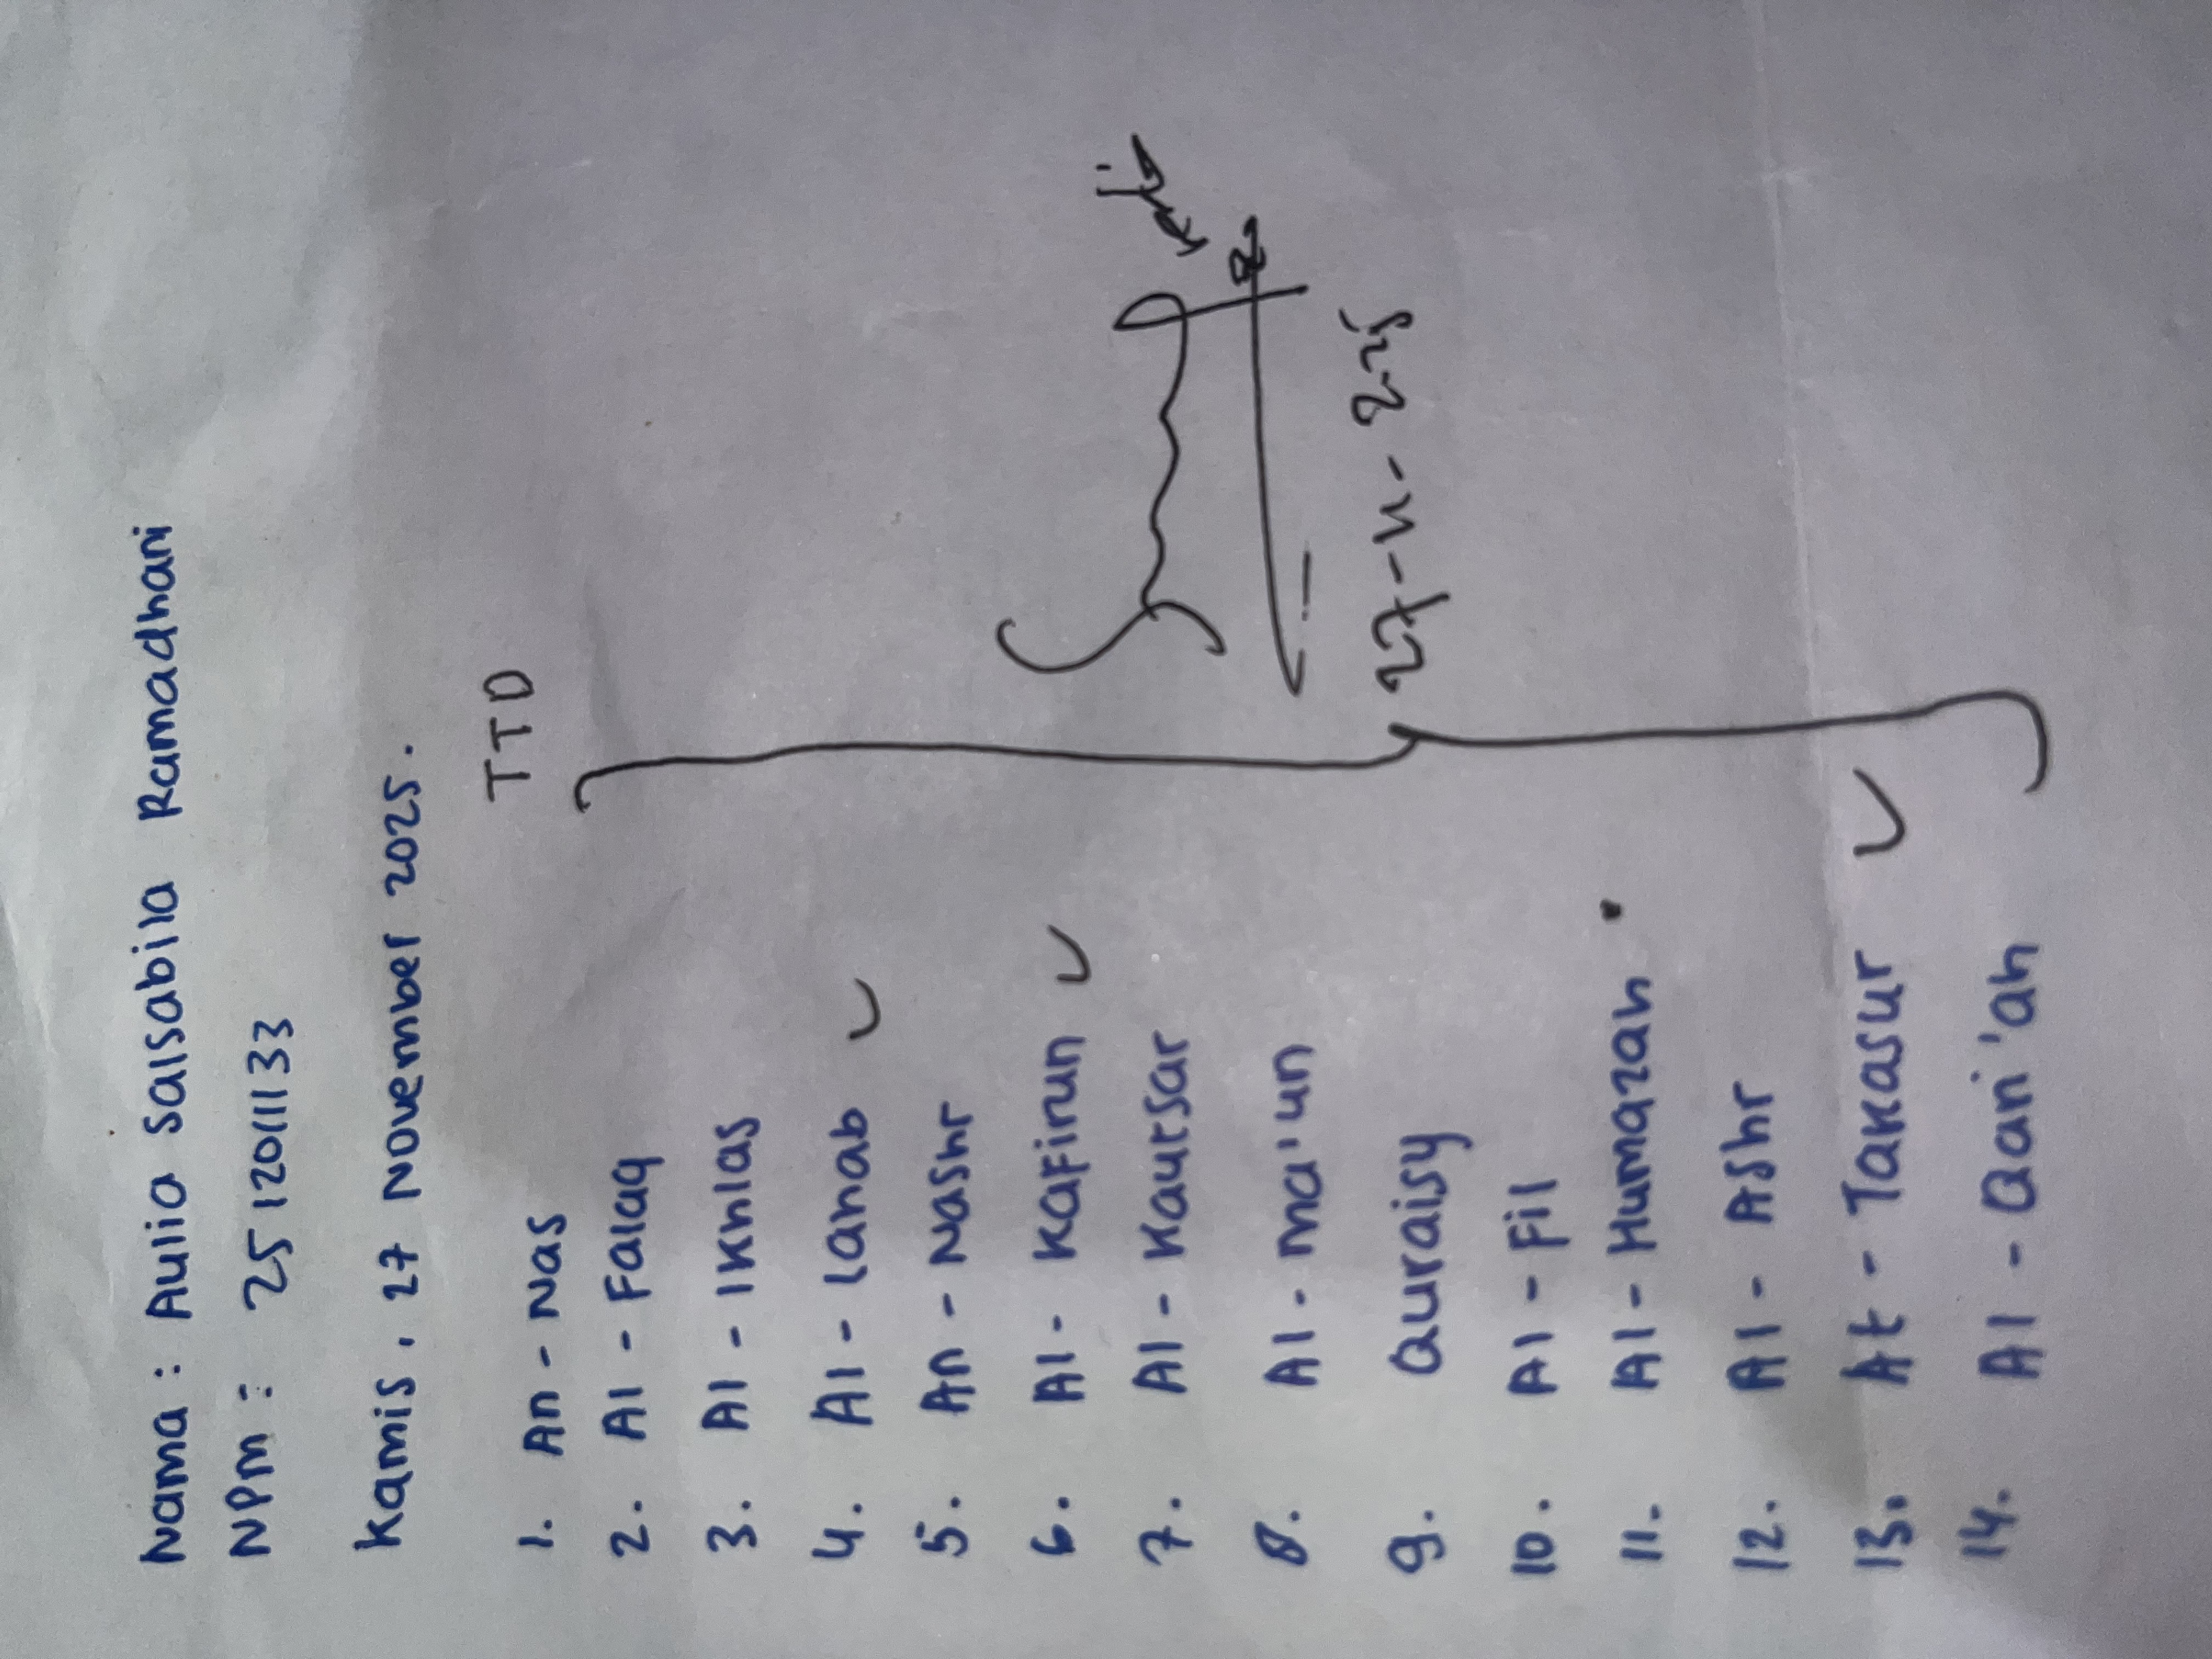 Nama : Aulia Salsabila Ramadhani
NPM : 251201133
Kamis, 27 November 2025.
TTD
1. An - Nas
2. Al - Falaq
3. Al - Ikhlas
4. Al - Lahab
5. An - Nashr
6. Al - Kafirun
7. Al - Kautsar
8. Al - Ma'un
9. Quraisy
10. Al - Fil
11. Al - Humazah
12. Al - Ashr
13. At - Takasur
14. Al - Qari'ah
27-11-225